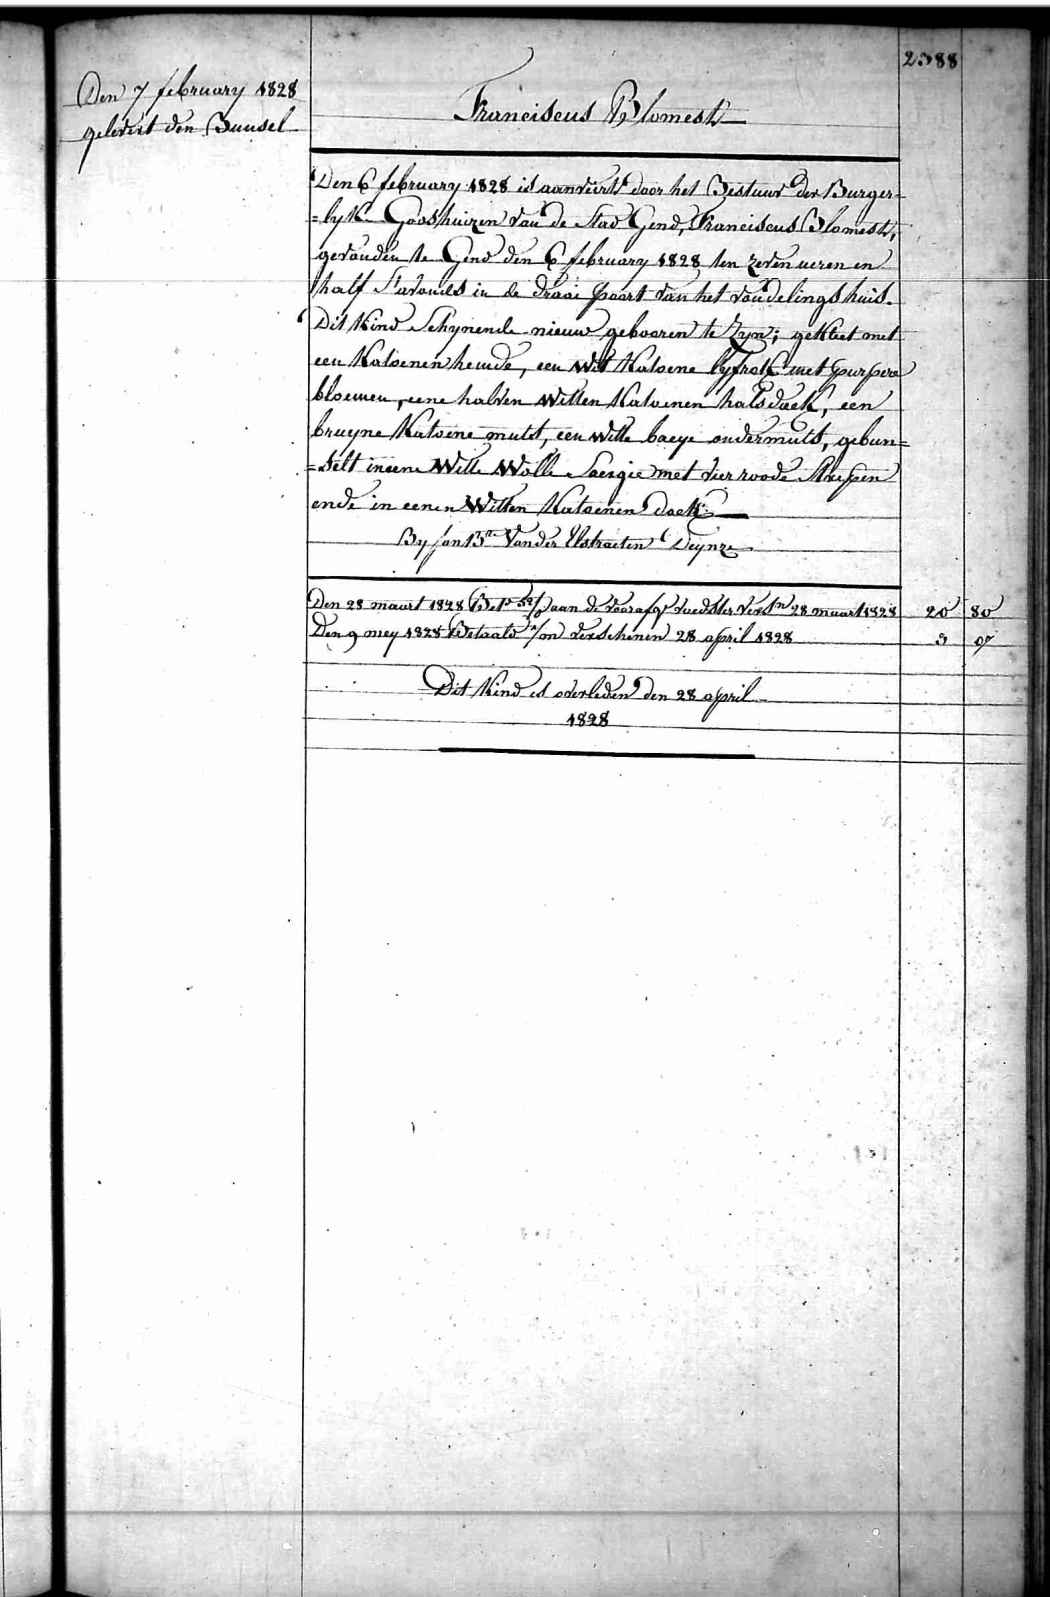 2388
Den 7 february 1828
gelevert den Bunsel
Franciscus Blomest
Den 6 february 1828 is aanveirt door het Bestuur der Burger=
=lyke Godshuizen van de Stad Gend, Franciscus Blomest,
gevonden te Gend den 6 february 1828 ten zeven ueren en
half s'avonds in de draai poort van het vondelingshuis.
Dit Kind schynende nieuw gebooren te Zyn; gekleet met
een Katoenen hemde, een Wit Katoene lyfrok met purpere
bloemen, eene halven Witten Katoenen halsdoek, een
bruyne Katoene muts, een Witte baeye ondermuts, gebun=
=selt in eene Witte Wolle Saergie met vier roode Strepen
ende in eenen Witten Katoenen doek.
By Jan Bte Vander Elstraeten Deynze
Den 28 maart 1828 Betd 52/ aan de voorafge voedster versn 28 maart 1828 20 80
Den 9 mey 1828 Betaald 1/m verschenen 28 april 1828 3 07
Dit Kind is overleden den 28 april
1828